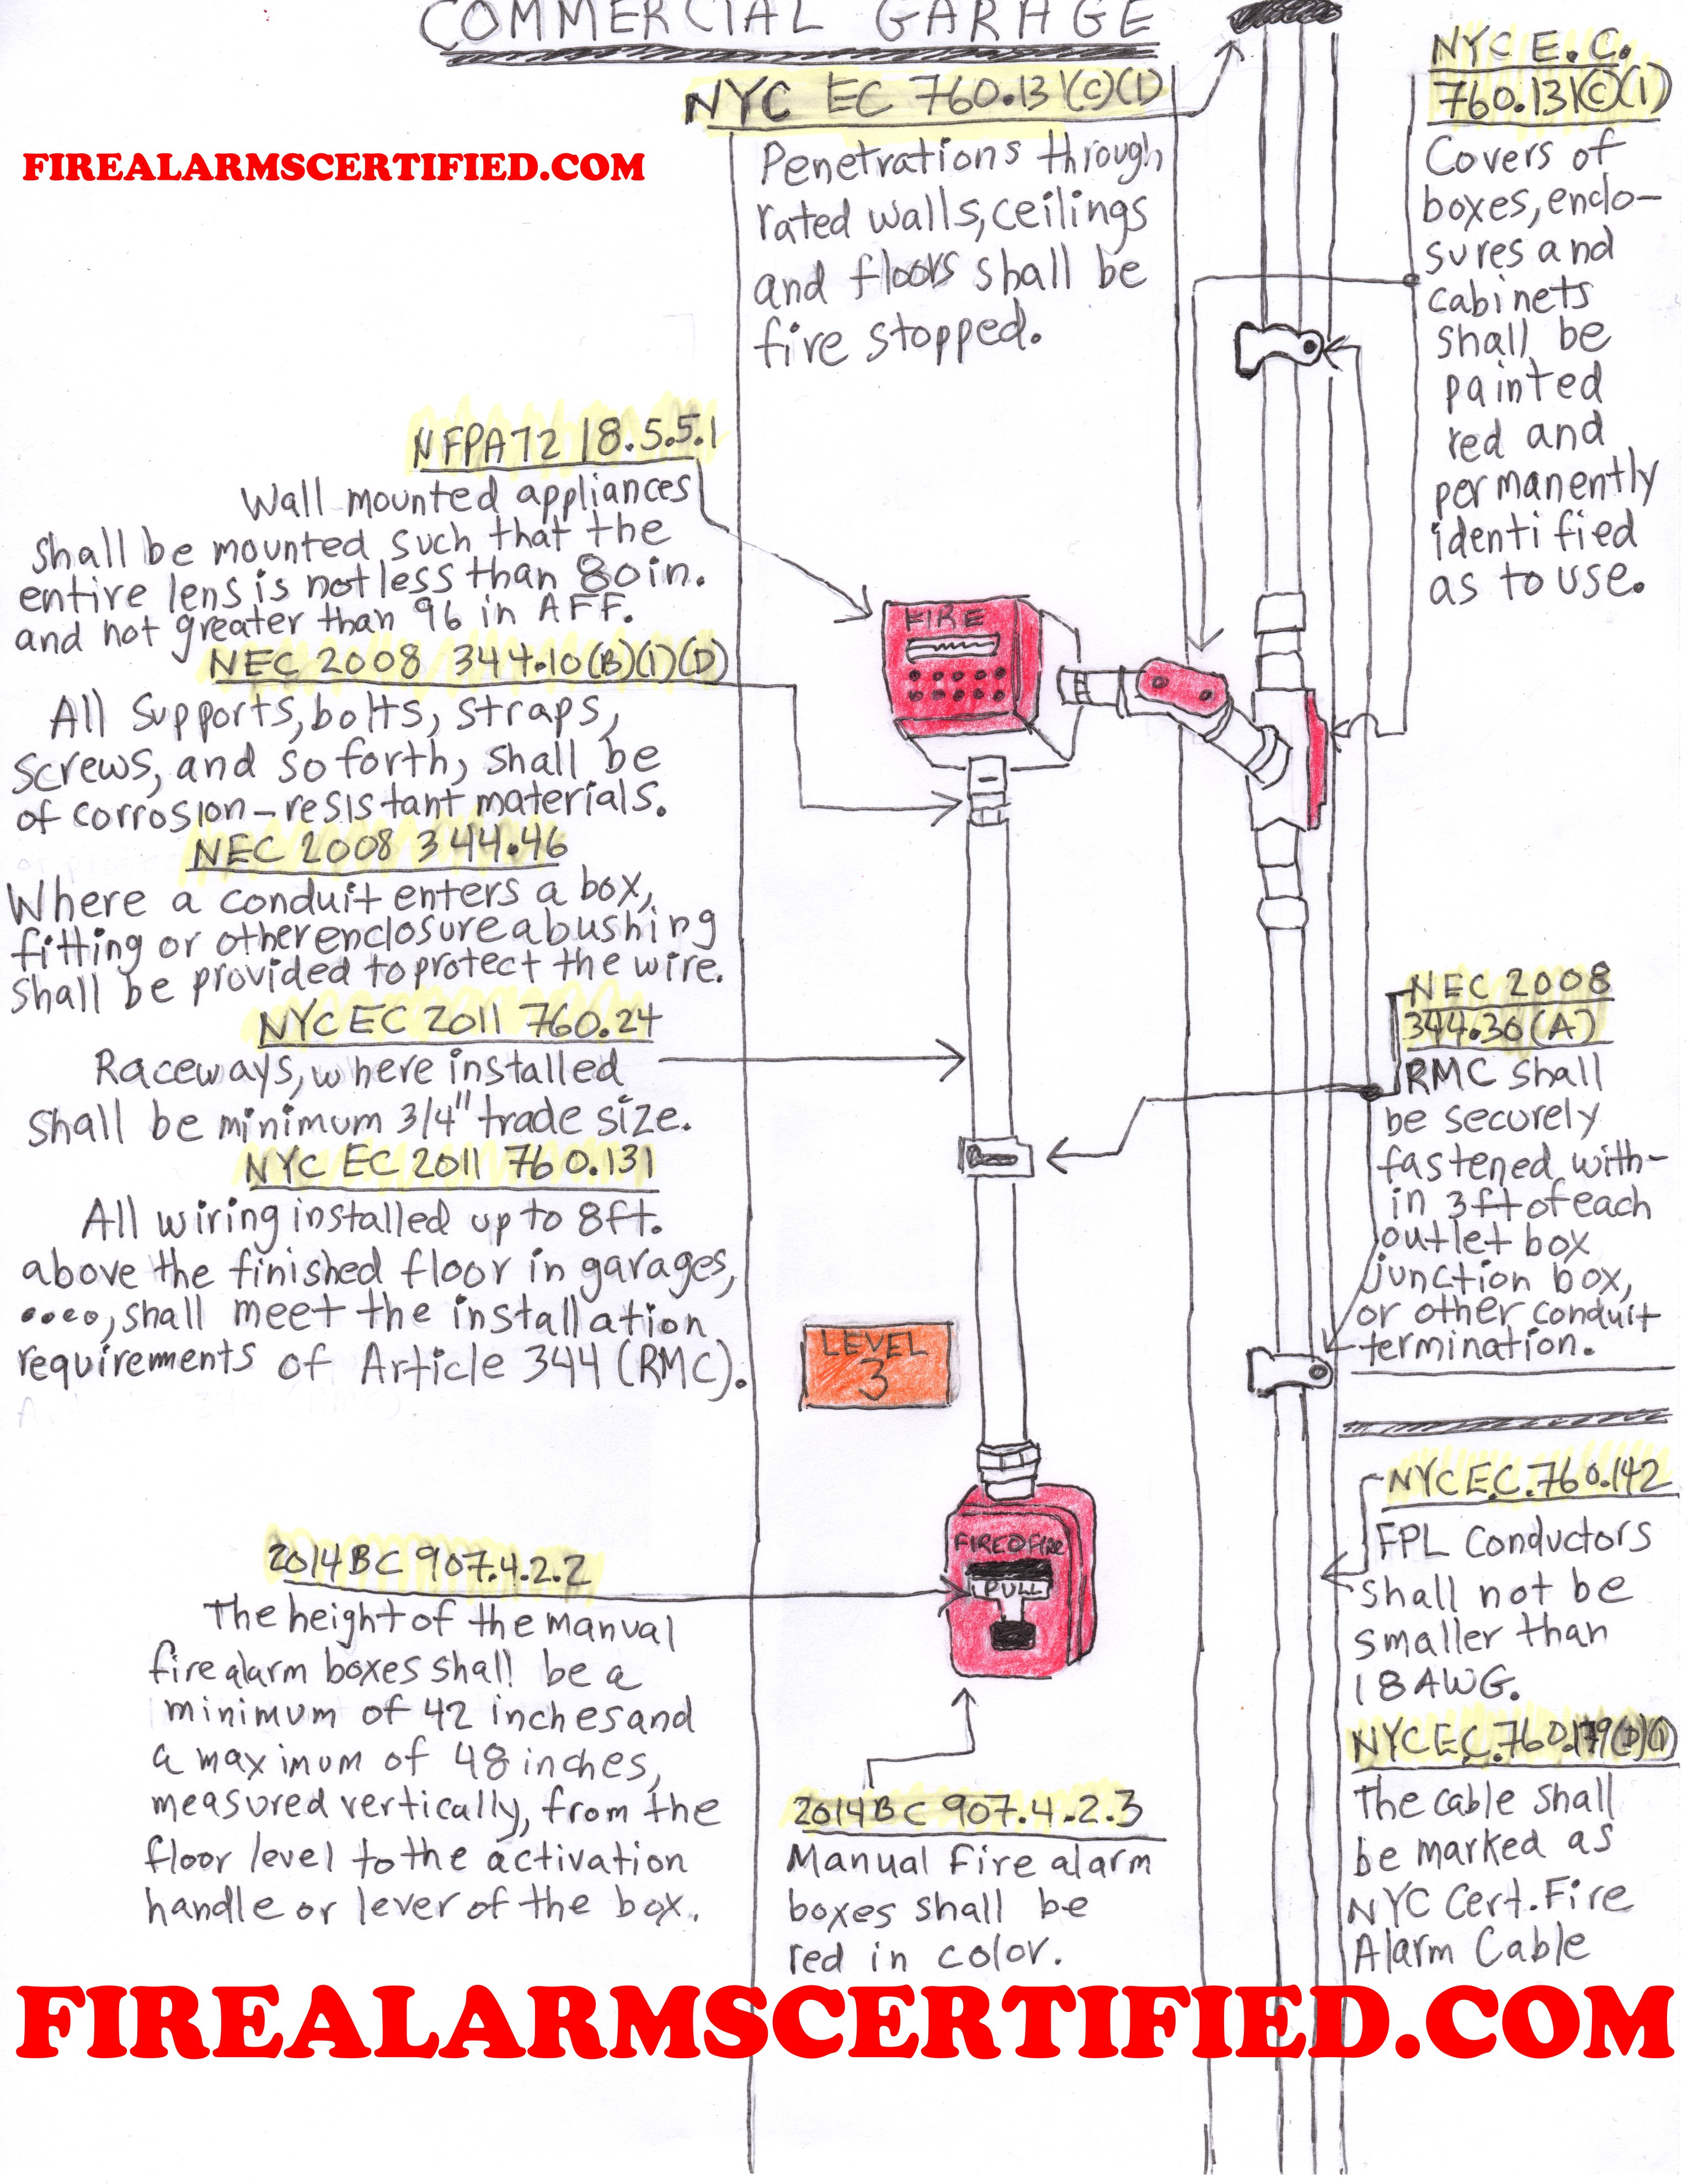 COMMERCIAL GARAGE
FIREALARMSCERTIFIED.COM
NYC EC 760.131(C)(1)
Penetrations through
rated walls, ceilings
and floors shall be
fire stopped.
NYC E.C.
760.131(C)(1)
Covers of
boxes, enclo-
sures and
cabinets
shall be
painted
red and
permanently
identified
as to use.
NFPA72 18.5.5.1
Wall mounted appliances
shall be mounted such that the
entire lens is not less than 80in.
and not greater than 96 in AFF.
NEC 2008 344.10(B)(1)(D)
All supports, bolts, straps,
screws, and so forth, shall be
of corrosion-resistant materials.
NEC 2008 344.46
Where a conduit enters a box,
fitting or other enclosure a bushing
shall be provided to protect the wire.
NYC EC 2011 760.24
Raceways, where installed
shall be minimum 3/4" trade size.
NYC EC 2011 760.131
All wiring installed up to 8ft.
above the finished floor in garages,
...., shall meet the installation
requirements of Article 344 (RMC).
FIRE
LEVEL
3
NEC 2008
344.30(A)
RMC shall
be securely
fastened with-
in 3ft of each
outlet box
junction box,
or other conduit
termination.
NYC E.C. 760.142
FPL Conductors
shall not be
smaller than
18 AWG.
NYC E.C. 760.179(D)(1)
The cable shall
be marked as
NYC Cert. Fire
Alarm Cable
2014 BC 907.4.2.2
The height of the manual
fire alarm boxes shall be a
minimum of 42 inches and
a maximum of 48 inches,
measured vertically, from the
floor level to the activation
handle or lever of the box.
FIRE FIRE
PULL
2014 BC 907.4.2.3
Manual fire alarm
boxes shall be
red in color.
FIREALARMSCERTIFIED.COM